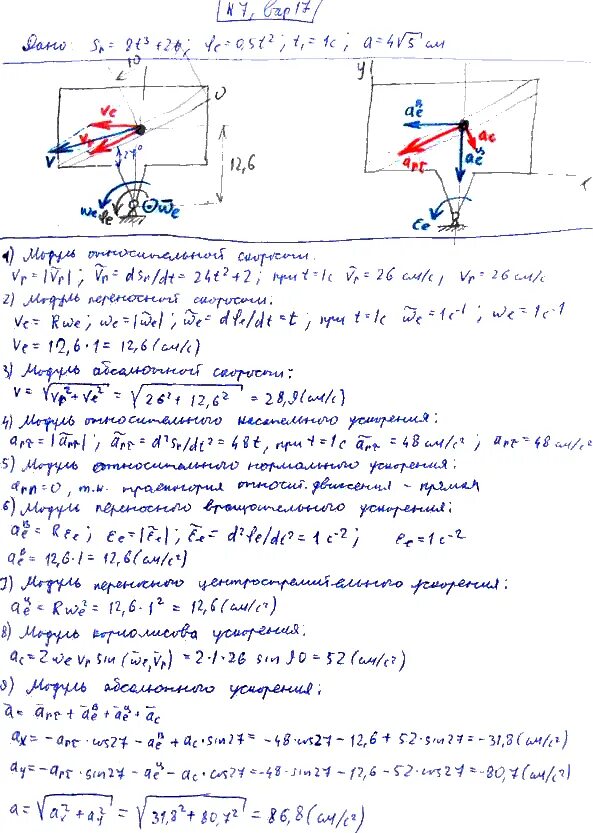 N7, вар 17
Дано: Sr = 8t³ + 2t; φe = 0,5t²; t₁ = 1c; a = 4√5 см
10
O
y
ve
vr
v
27°
12,6
ωe
φe
ω̄e
aeᵇ
ac
arτ
aeᶸ
εe
1) Модуль относительной скорости.
Vr = |Ṽr|; Ṽr = dSr/dt = 24t² + 2; при t = 1c Ṽr = 26 см/с, Vr = 26 см/с
2) Модуль переносной скорости:
Ve = Rωe; ωe = |ω̃e|; ω̃e = dφe/dt = t; при t = 1c ω̃e = 1c⁻¹; ωe = 1c⁻¹
Ve = 12,6·1 = 12,6 (см/с)
3) Модуль абсолютной скорости:
V = √Vr² + Ve² = √26² + 12,6² = 28,9 (см/с)
4) Модуль относительного касательного ускорения:
arτ = |ãrτ|; ãrτ = d²Sr/dt² = 48t, при t = 1c ãrτ = 48 см/с²; arτ = 48 см/с²
5) Модуль относительного нормального ускорения:
arn = 0, т.к. траектория относит. движения – прямая
6) Модуль переносного вращательного ускорения:
aeᵇ = Rεe; εe = |ε̃e|; ε̃e = d²φe/dt² = 1c⁻²; εe = 1c⁻²
aeᵇ = 12,6·1 = 12,6 (см/с²)
7) Модуль переносного центростремительного ускорения:
aeᶸ = Rωe² = 12,6·1² = 12,6 (см/с²)
8) Модуль кориолисова ускорения:
ac = 2ωe vr sin(ω̄e, v̄r) = 2·1·26 sin 90 = 52 (см/с²)
9) Модуль абсолютного ускорения:
ā = ārτ + āeᵇ + āeᶸ + āc
ax = -arτ·cos27 - aeᵇ + ac·sin27 = -48·cos27 - 12,6 + 52·sin27 = -31,8 (см/с²)
ay = -arτ·sin27 - aeᶸ - ac·cos27 = -48·sin27 - 12,6 - 52·cos27 = -80,7 (см/с²)
a = √ax² + ay² = √31,8² + 80,7² = 86,8 (см/с²)